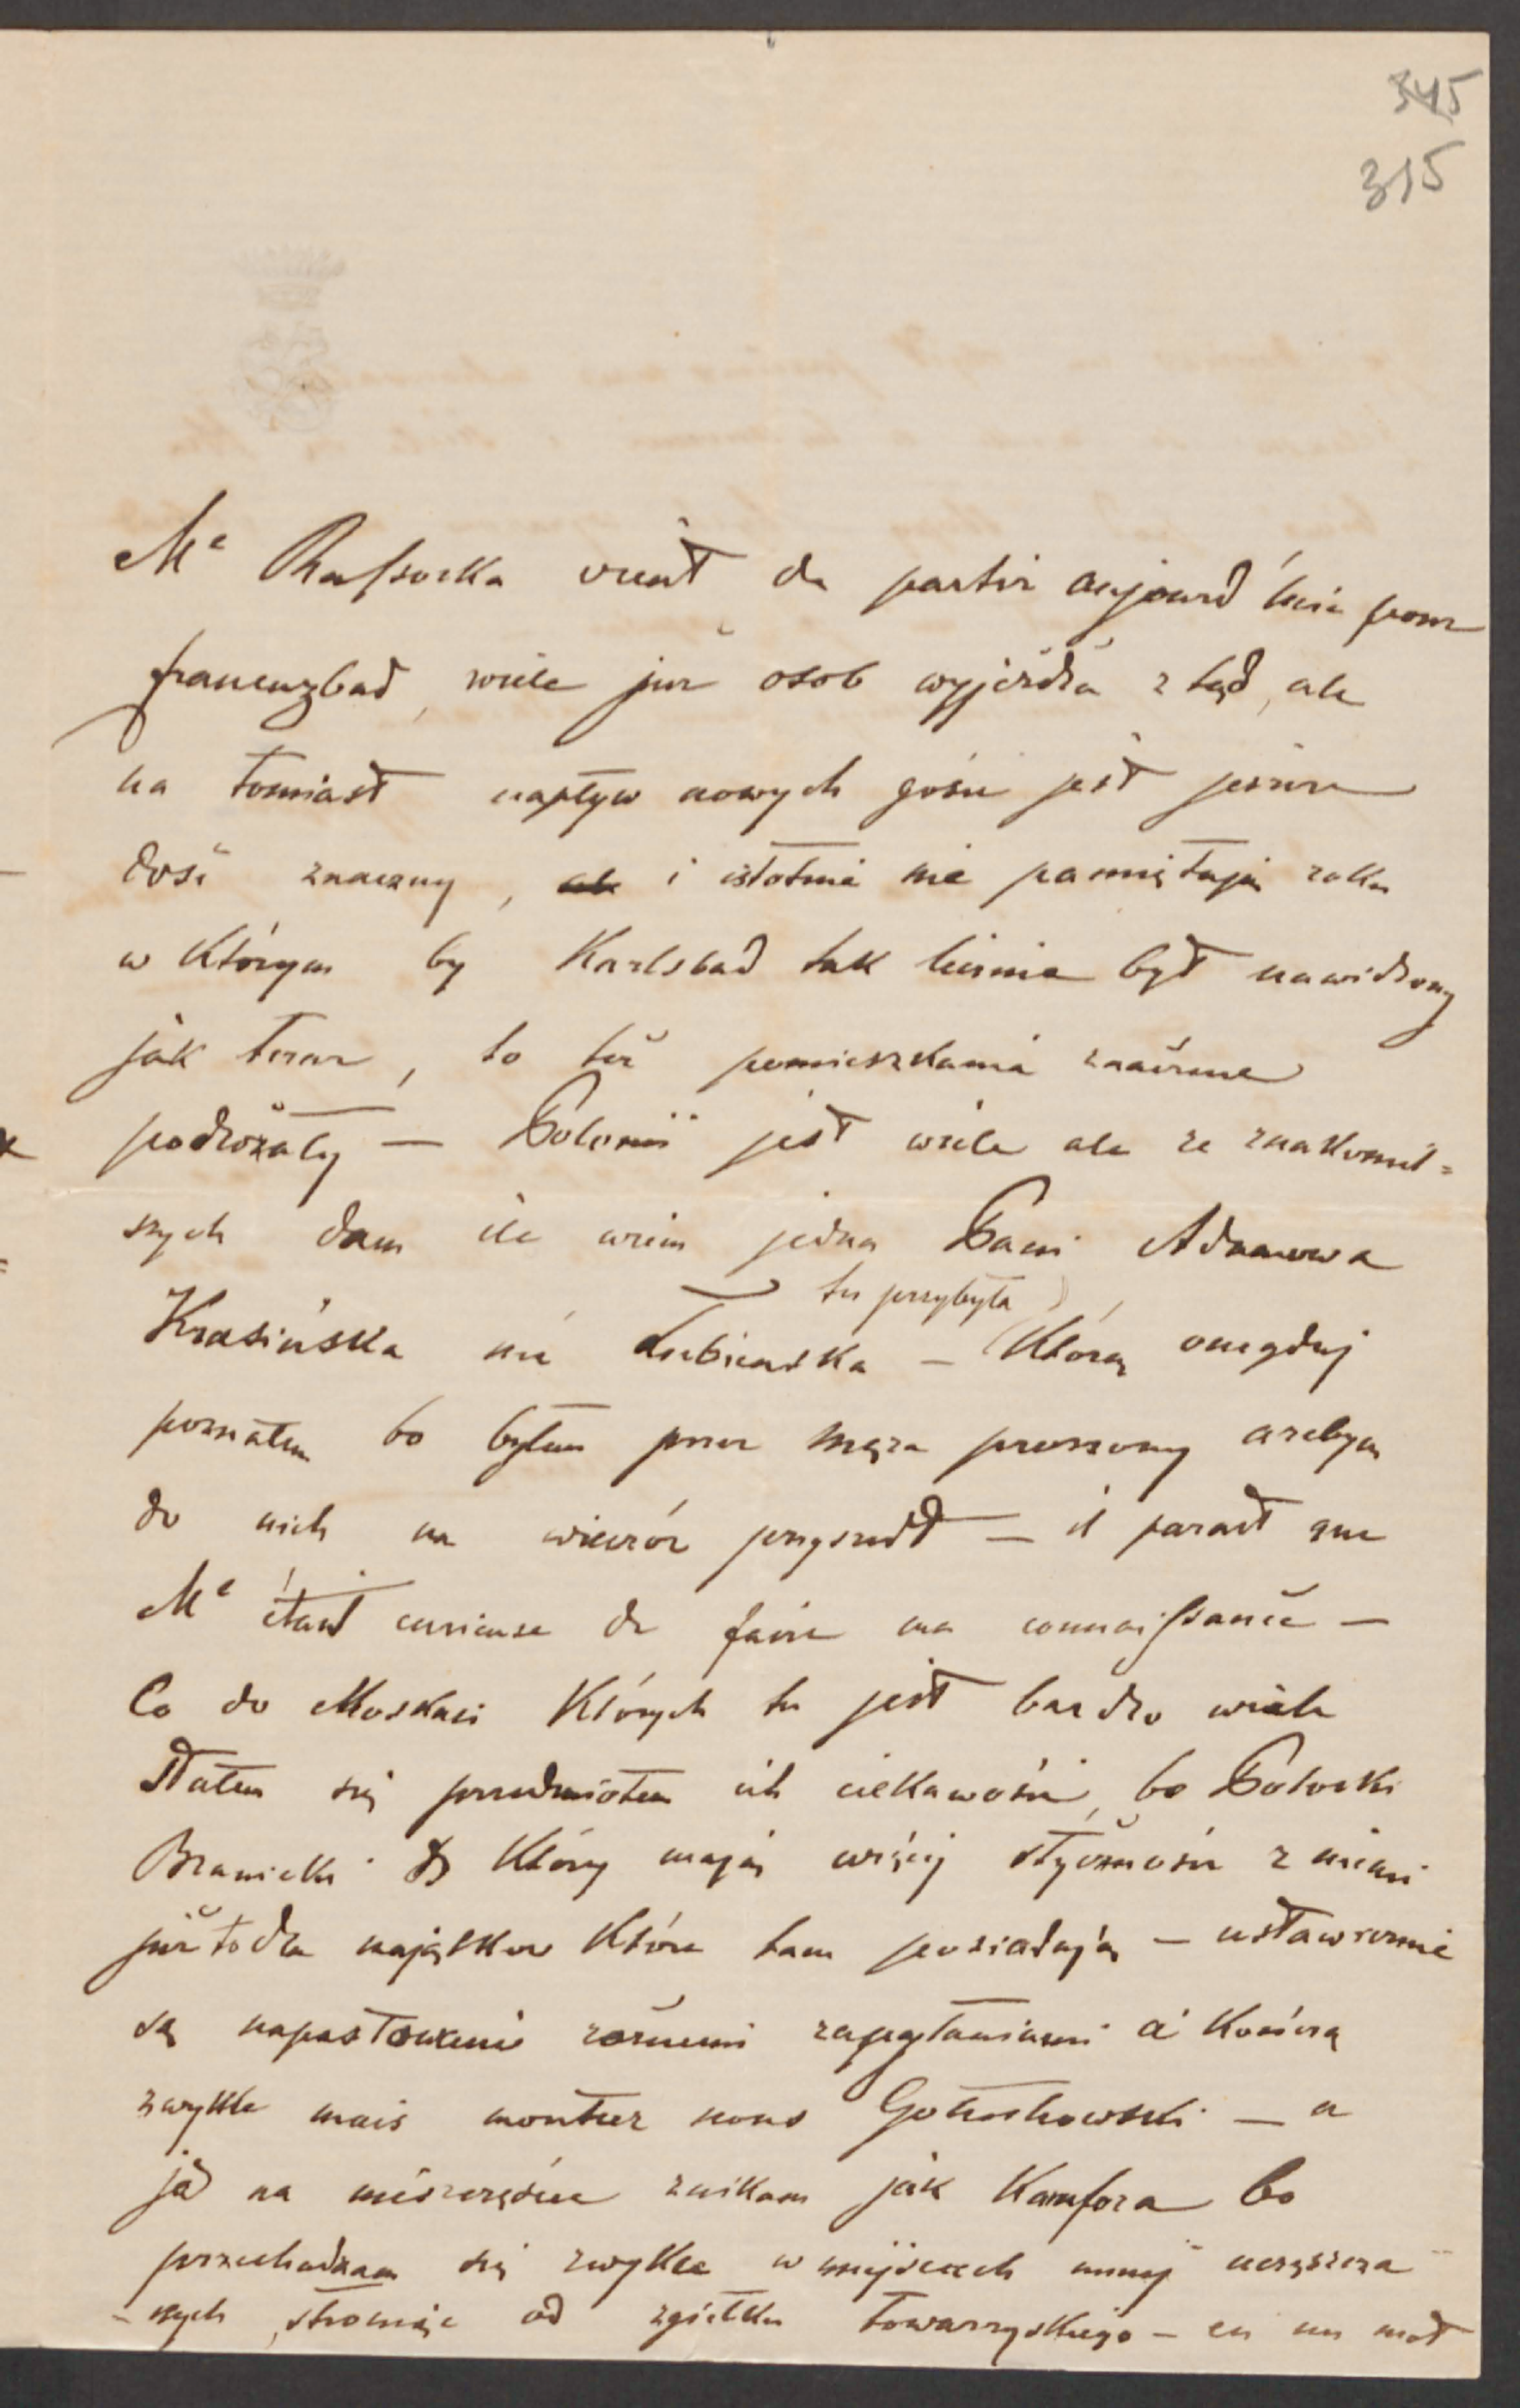 345
315
Me Rafsocka vient de partir aujourd'huie pour
francuzbad, wiele juz osob wyjeżdża z tąd, ale
na tomiast napływ nowych gości jest jeszcze
dość znaczny, ale i istotnie nie pamiętają roku
w którym by Karlsbad tak licznie był nawidzony
jak teraz, to też pomieszkania znacznie
podrożały — Polonii jest wiele ale ze znakomit=
szych dam ile wiem jedna Pani Adamowa
tu przybyła
Krasińska née Łubieńska — którą onegdaj
poznałem bo byłem przez męża proszony azebym
do nich na wieczór przyszedł — il parait que
Me étant curieuse de faire ma connaissance —
Co do Moskali których tu jest bardzo wiele
stałem się przedmiotem ich ciekawości, bo Potocki
Branicki który mają więcej styczności z niemi
już to dla majątków które tam posiadają — ustawicznie
są napastowani różnemi zapytaniami a kończą
zwykle mais montrez nous Gołuchowski — a
ja na nieszczęście znikam jak Kamfora bo
przechadzam się zwykle w miejscach mniej uczęszcza-
-nych, stroniąc od zgiełku towarzyskiego — en un mot